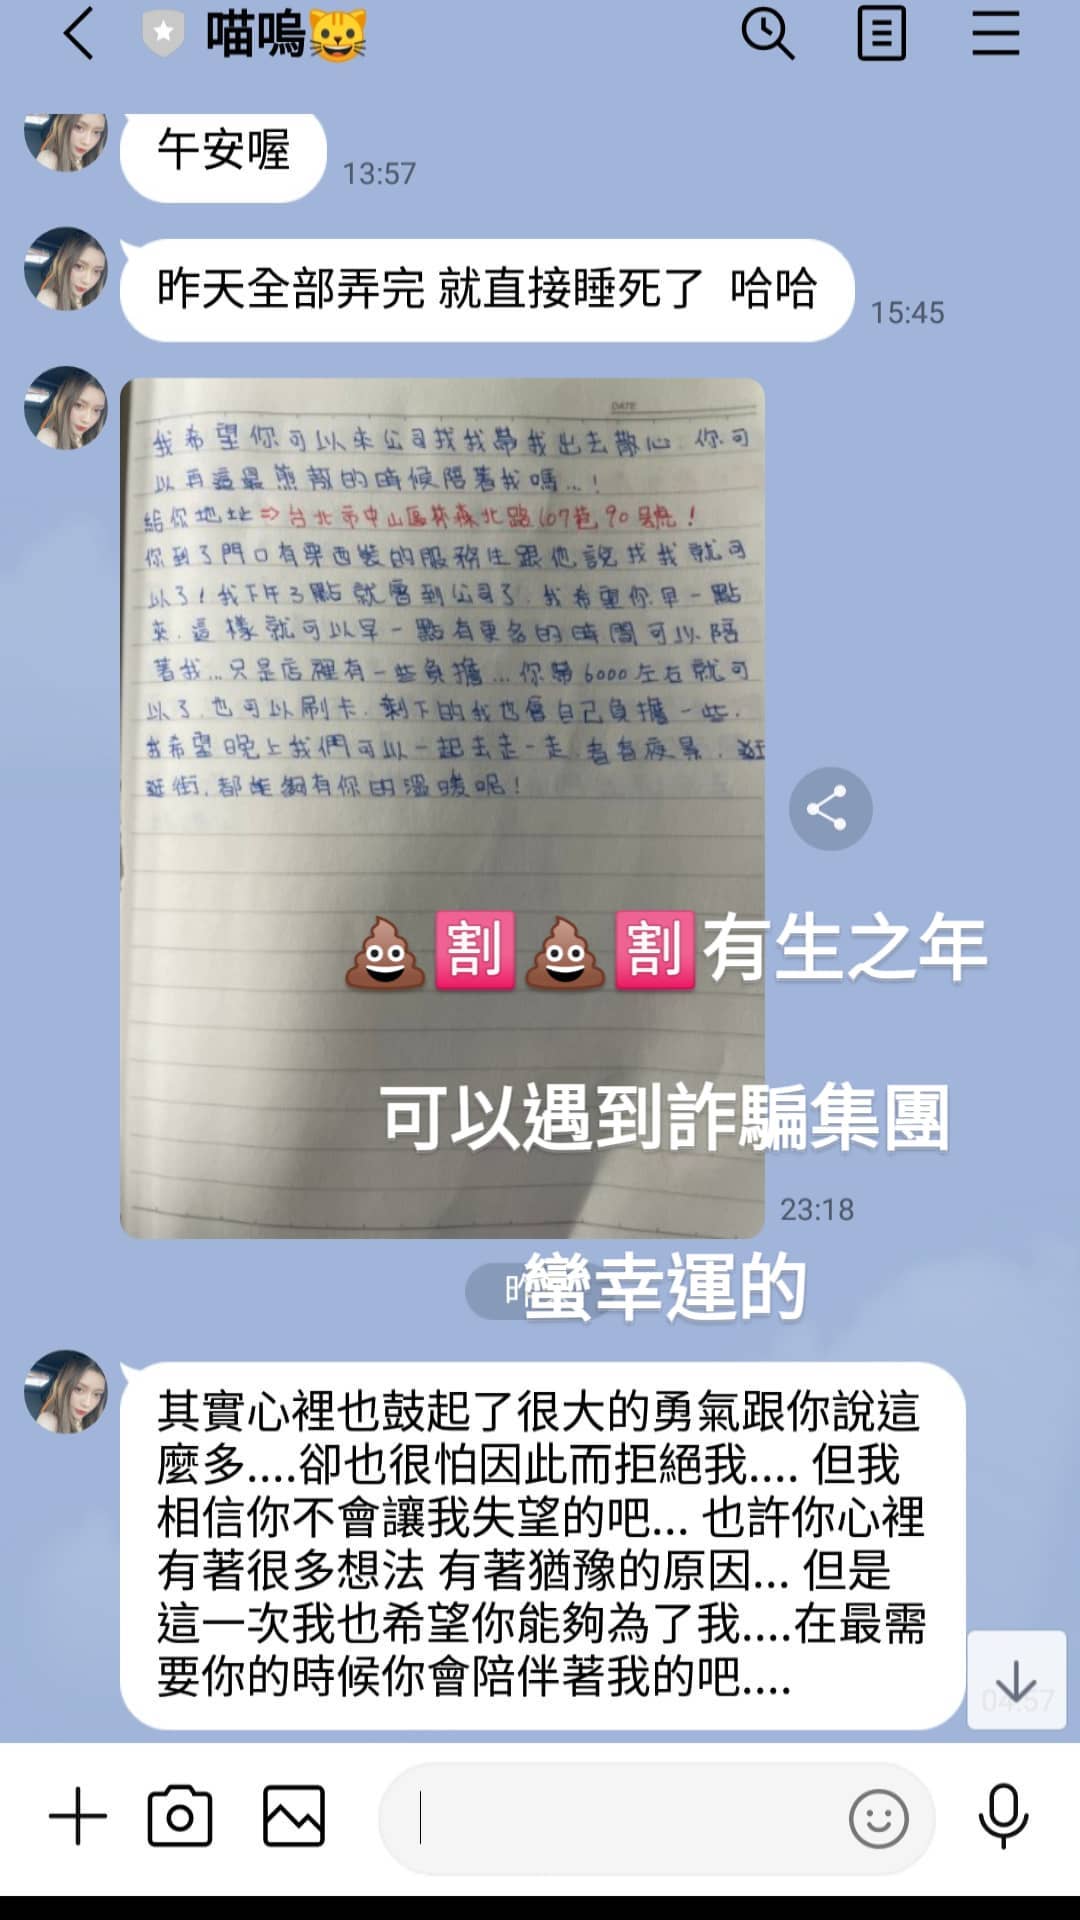 喵嗚😺
午安喔
13:57
昨天全部弄完 就直接睡死了 哈哈
15:45
DATE
我希望你可以來公司找我帶我出去散心. 你可
以再這最煎熬的時候陪著我嗎...!
給你地址⇒台北市中山區林森北路107巷90號!
你到了門口有穿西裝的服務生跟他說找我就可
以了!我下午3點就會到公司了. 我希望你早一點
來. 這樣就可以早一點有更多的時間可以陪
著我...只是店裡有一些負擔...你帶6000左右就可
以了. 也可以刷卡. 剩下的我也會自己負擔一些.
我希望晚上我們可以一起去走一走. 看看夜景. 逛
逛街. 都能夠有你的溫暖呢!
💩🈹💩🈹有生之年
可以遇到詐騙集團
23:18
蠻幸運的
其實心裡也鼓起了很大的勇氣跟你說這
麼多....卻也很怕因此而拒絕我.... 但我
相信你不會讓我失望的吧... 也許你心裡
有著很多想法 有著猶豫的原因... 但是
這一次我也希望你能夠為了我....在最需
要你的時候你會陪伴著我的吧....
04:57